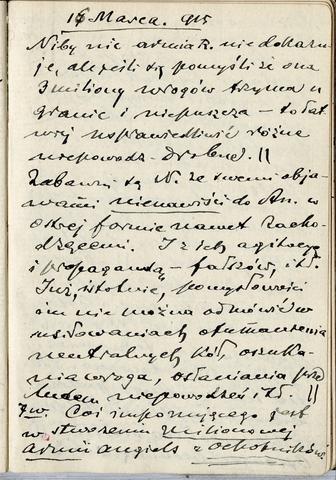 16 Marca. 915
Niby nic armia R. nie dokazu-
je, ale jeśli się pomyśli że ona
3 miliony wrogów trzyma u
granic i nie puszcza – to łat
wiej usprawiedliwić różne
niepowodz. drobne. ||
Zabawni są N. ze swemi obja-
wami nienawiści do An. w
ostrej formie nawet zacho-
dzącemi. I z ich agitacyą
i propagandą – fałszów, itd.
Już, istotnie, pomysłowości
im nie można odmówić w
usiłowaniach otumanienia
neutralnych kół, oszuka-
nia wroga, osłaniania przed
ludem niepowodzeń itd. ||
Coś imponującego jest
w stworzeniu milionowej
armii angiels z ochotników